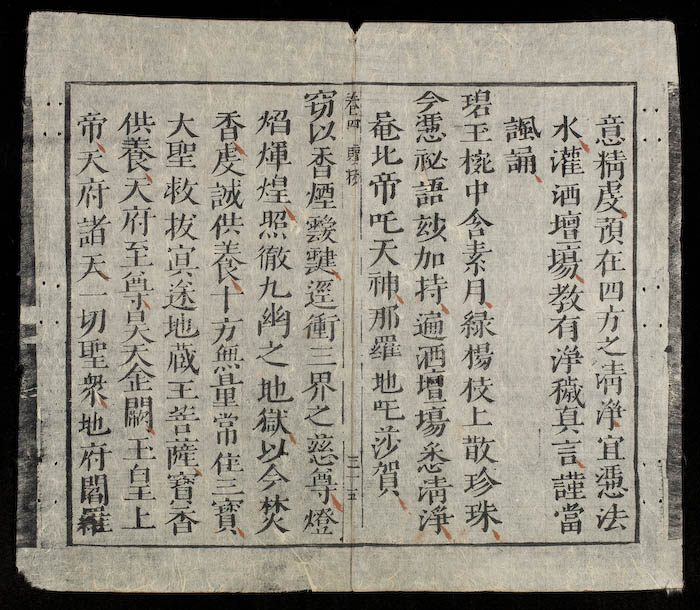 意精虔須在四方之清淨宜憑法
水灌洒壇場教有淨穢真言謹當
諷誦
碧玉椀中含素月綠楊枝上散珍珠
今憑祕語玅加持遍洒壇場悉清淨
菴比帝吒天神那羅地吒莎賀
卷四
三十五
窃以香煙靉靆逕衝三界之慈尊燈
焰煇煌照徹九幽之地獄以今焚
香虔誠供養十方無量常住三寶
大聖救拔冥途地藏王菩薩寶香
供養天府至尊昊天金闕玉皇上
帝天府諸天一切聖衆地府閻羅